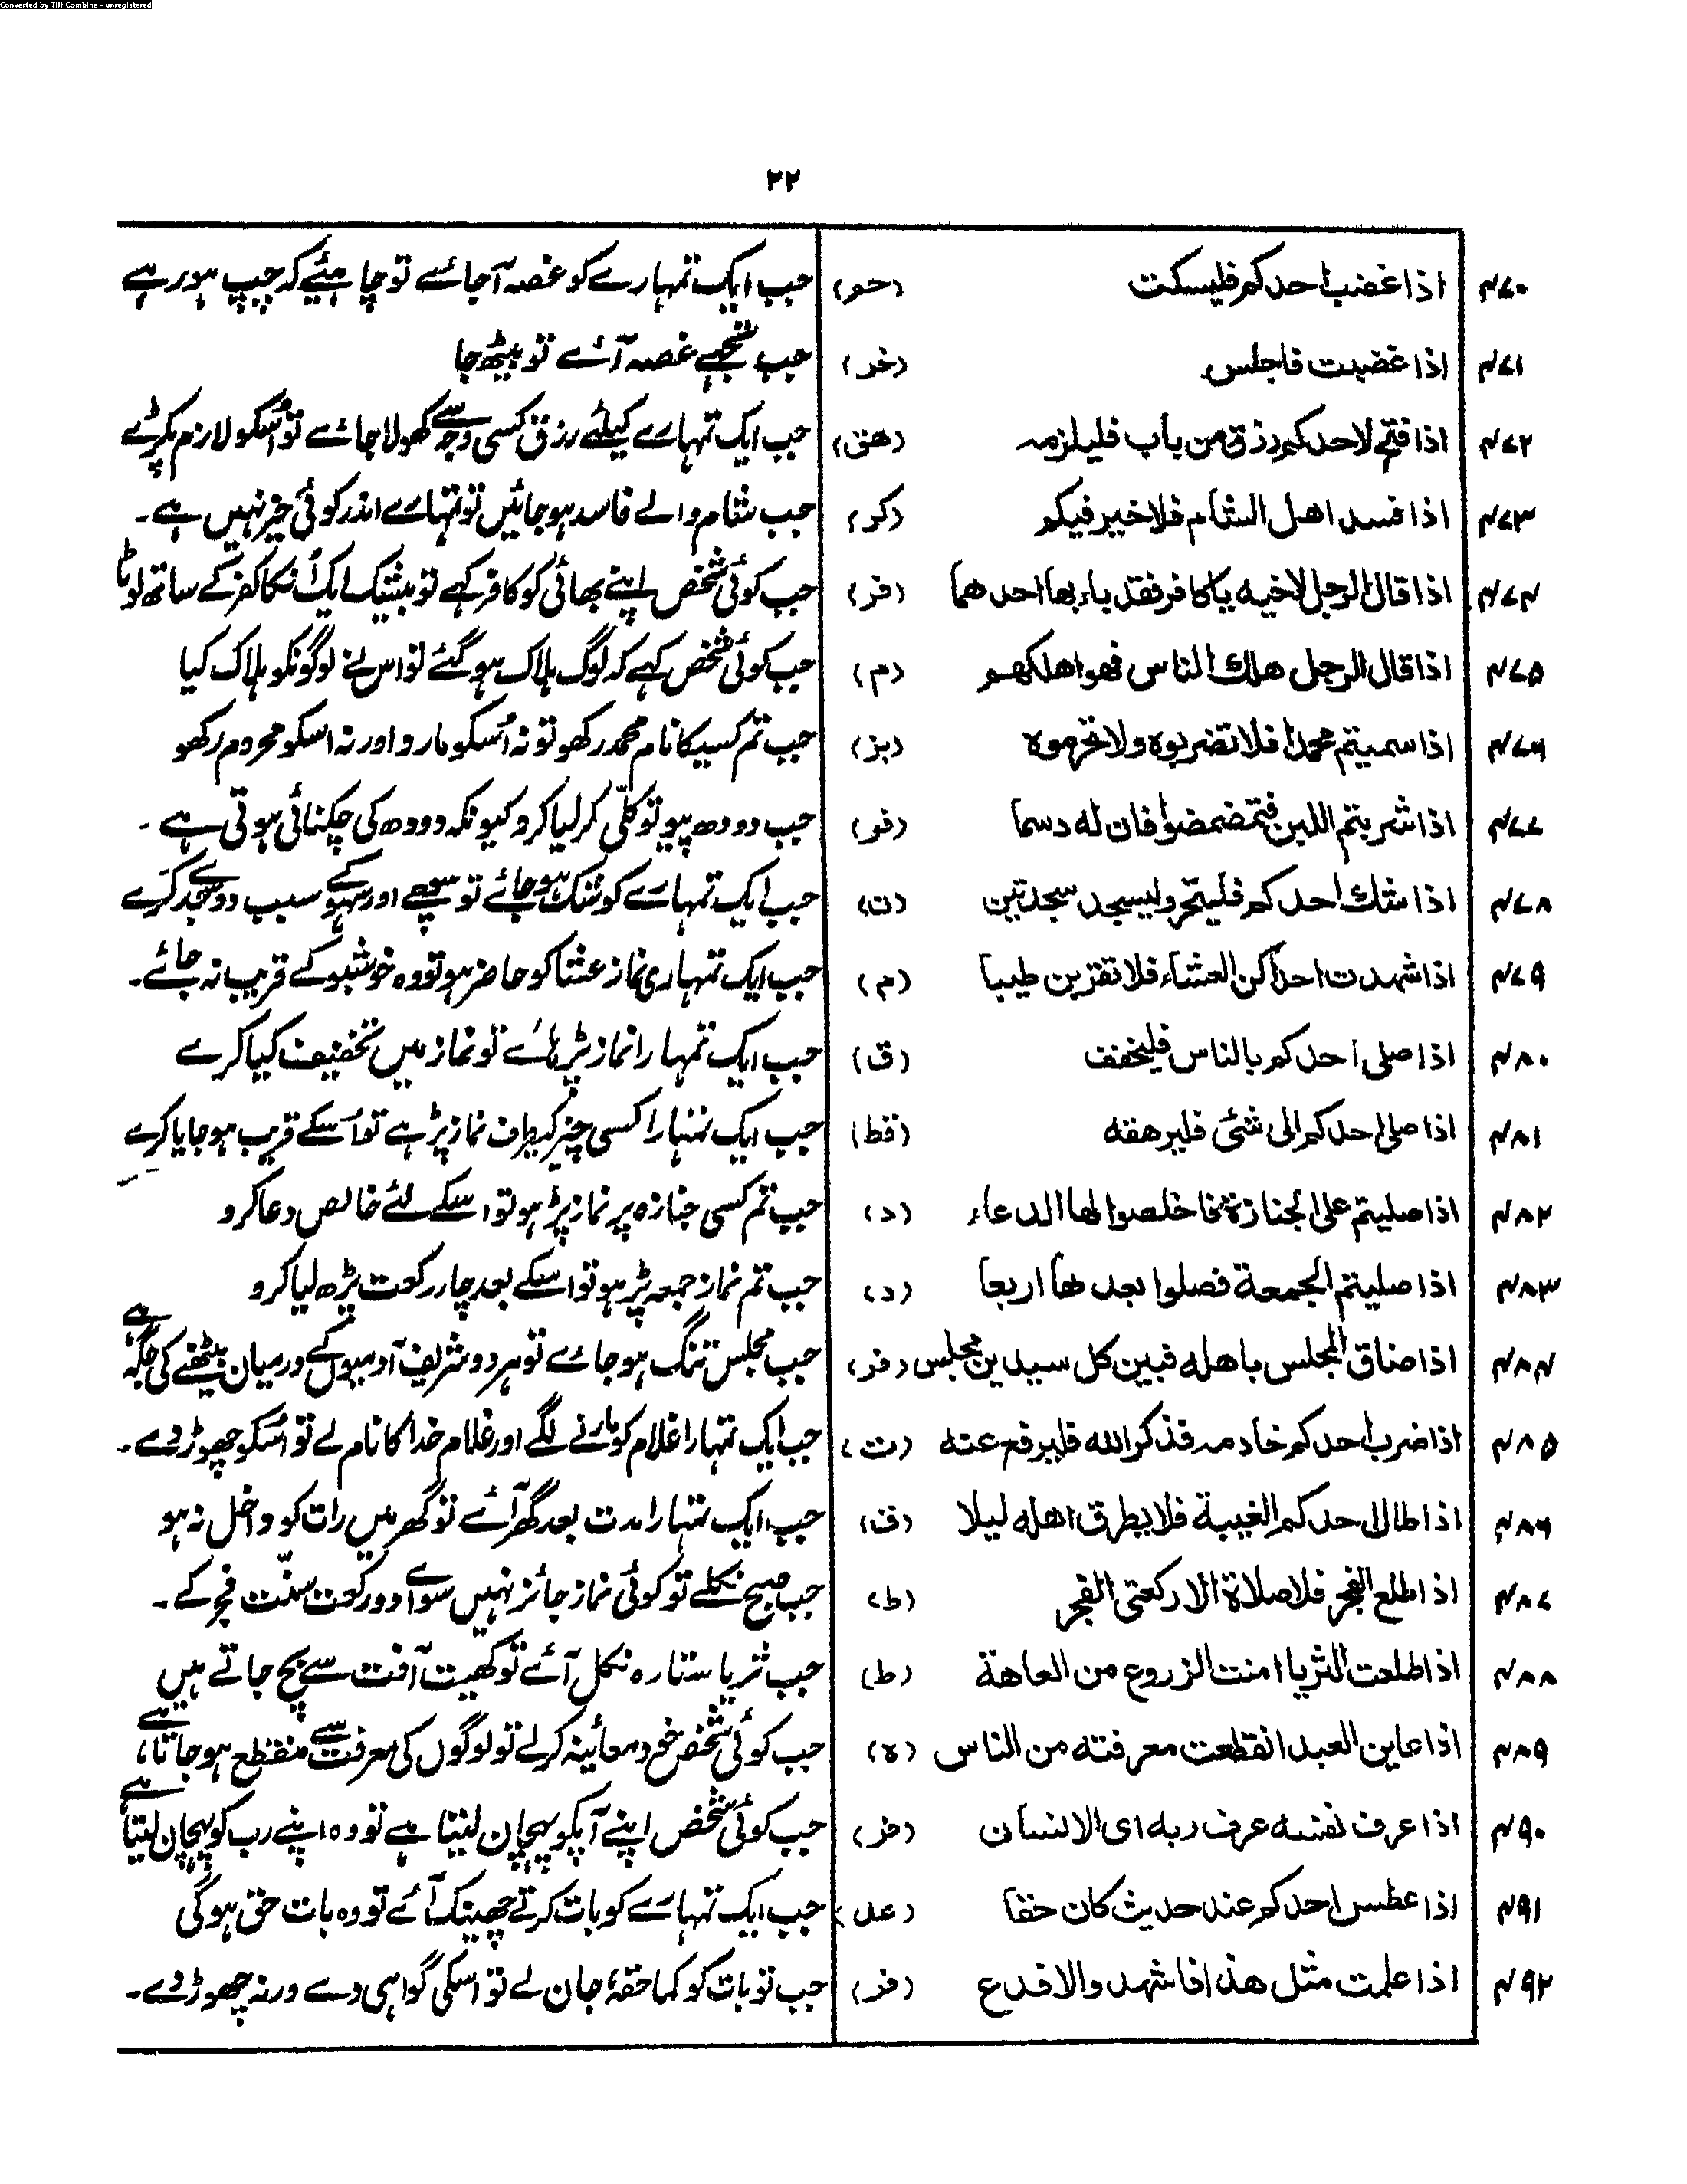 Converted by Tiff Combine - unregistered
۲۲
۴۷۰ اذا غضب احدکم فلیسکت (حو) جب ایک تمہارے کو غصہ آجائے تو چاہئیے کہ چپ ہو رہے
۴۷۱ اذا غضبت فاجلس (خر) جب تجھے غصہ آئے تو بیٹھ جا
۴۷۲ اذا فتح لاحدکم رزق من باب فلیلزمہ (ھق) جب ایک تمہارے کیلئے رزق کسی وجہ سے کھولا جائے تو اُسکو لازم پکڑے
۴۷۳ اذا فسد اھل الشام فلاخیر فیکم (کر) جب شام والے فاسد ہو جائیں تو تمہارے اندر کوئی خیر نہیں ہے۔
۴۷۴ اذا قال الرجل لاخیہ یاکافر فقد باء بھا احدھما (فر) جب کوئی شخص اپنے بھائی کو کافر کہے تو بیشک ایک اُنکا کفر کے ساتھ لوٹا
۴۷۵ اذا قال الرجل ھلك الناس فھو اھلکھم (م) جب کوئی شخص کہے کہ لوگ ہلاک ہو گئے تو اس نے لوگونکو ہلاک کیا
۴۷۶ اذا سمیتم محمدا فلا تضربوہ ولا تحرموہ (بز) جب تم کسیکا نام محمد رکھو تو نہ اُسکو مارو اور نہ اسکو محروم رکھو
۴۷۷ اذا شربتم اللبن فتمضمضوا فان لہ دسما (فو) جب دودھ پیو تو کلّی کر لیا کرو کیونکہ دودھ کی چکنائی ہوتی ہے۔
۴۷۸ اذا شك احدکم فلیتحر ولیسجد سجدتین (ن) جب ایک تمہارے کو شک ہو جائے تو سوچے اور سہو کے سبب دو سجدے کرے
۴۷۹ اذا شھدت احداکن العشاء فلا تقربن طیبا (م) جب ایک تمہاری نماز عشا کو حاضر ہو تو وہ خوشبو کے قریب نہ جائے۔
۴۸۰ اذا صلی احدکم بالناس فلیخفف (ق) جب ایک تمہارا نماز پڑہائے تو نماز میں تخفیف کیا کرے
۴۸۱ اذا صلی احدکم الی شئی فلیرھقہ (قط) جب ایک تمہارا کسی چیز کیطرف نماز پڑہے تو اُسکے قریب ہو جایا کرے
۴۸۲ اذا صلیتم علی الجنازۃ فاخلصوا لھا الدعاء (د) جب تم کسی جنازہ پر نماز پڑہو تو اسکے لئے خالص دعا کرو
۴۸۳ اذا صلیتم الجمعۃ فصلوا بعدھا اربعا (د) جب تم نماز جمعہ پڑہو تو اسکے بعد چار رکعت پڑھ لیا کرو
۴۸۴ اذا ضاق المجلس باھلہ فبین کل سیدین مجلس (فر) جب مجلس تنگ ہو جائے تو ہر دو شریف آدمیوں کے درمیان بیٹھنے کی جگہ ہے
۴۸۵ اذا ضرب احدکم خادمہ فذکر اللہ فلیرفع عنہ (ت) جب ایک تمہارا غلام کو مارنے لگے اور غلام خدا کا نام لے تو اُسکو چھوڑ دے۔
۴۸۶ اذا طال احدکم الغیبۃ فلا یطرق اھلہ لیلا (ق) جب ایک تمہارا مدت بعد گھر آئے تو گھر میں رات کو داخل نہ ہو
۴۸۷ اذا طلع الفجر فلا صلاۃ الا رکعتی الفجر (ط) جب صبح نکلے تو کوئی نماز جائز نہیں سوائے دو رکعت سنّت فجر کے۔
۴۸۸ اذا طلعت الثریا امنت الزروع من العاھۃ (ط) جب ثریا ستارہ نکل آئے تو کھیت آفت سے بچ جاتے ہیں
۴۸۹ اذا عاین العبد انقطعت معرفتہ من الناس (ہ) جب کوئی شخص خود معائینہ کرلے تو لوگوں کی معرفت سے منقطع ہو جاتا ہے
۴۹۰ اذا عرف نفسہ عرف ربہ ای الانسان جب کوئی شخص اپنے آپکو پہچان لیتا ہے تو وہ اپنے رب کو پہچان لیتا ہے
۴۹۱ اذا عطس احدکم عند حدیث کان حقا (عد) جب ایک تمہارے کو بات کرتے چھینک آئے تو وہ بات حق ہو گی
۴۹۲ اذا علمت مثل ھذا فاشھد والا فدع (فر) جب تو بات کو کما حقہٗ جان لے تو اسکی گواہی دے ورنہ چھوڑ دے۔